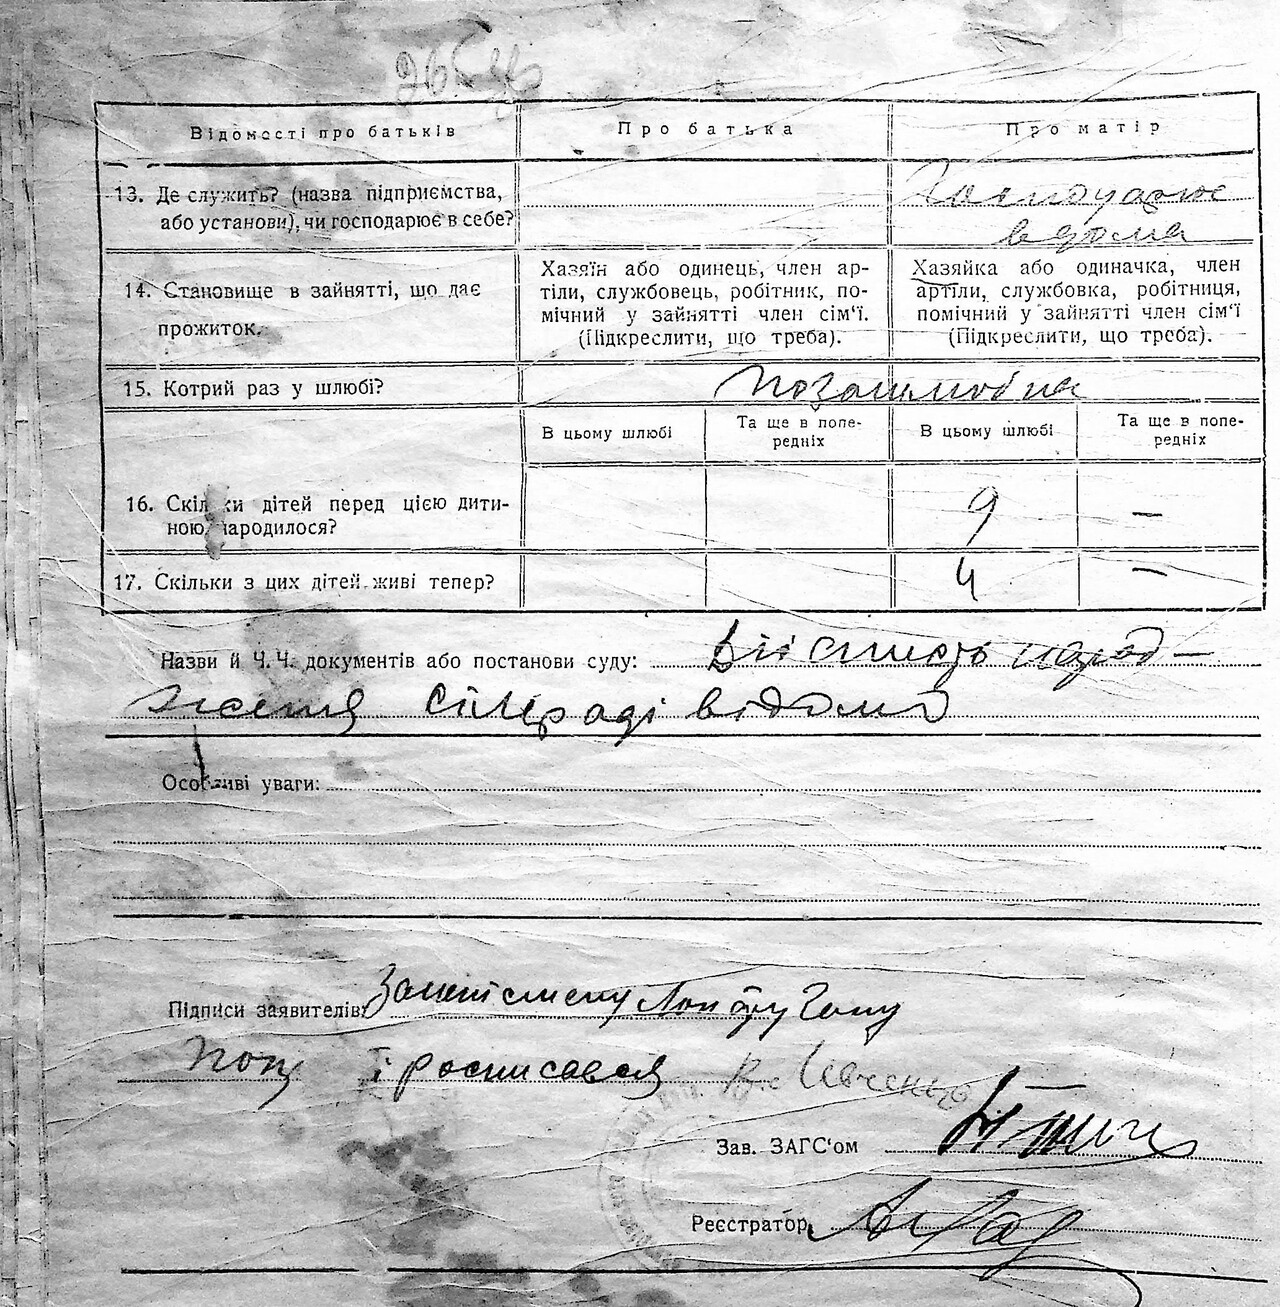 Відомості про батьків
Про батька
Про матір
13. Де служить? (назва підприємства,
або установи), чи господарює в себе?
Господарює
вдома
14. Становище в зайнятті, що дає
прожиток.
Хазяїн або одинець, член ар-
тіли, службовець, робітник, по-
мічний у зайнятті член сім'ї.
(Підкреслити, що треба).
Хазяйка або одиначка, член
артіли, службовка, робітниця,
помічний у зайнятті член сім'ї
(Підкреслити, що треба).
15. Котрий раз у шлюбі?
позашлюбна
В цьому шлюбі
Та ще в попе-
редніх
В цьому шлюбі
Та ще в попе-
редніх
16. Скільки дітей перед цією дити-
ною народилося?
9
—
17. Скільки з цих дітей живі тепер?
4
—
Назви й Ч.Ч. документів або постанови суду: Дійсність народ-
ження сільраді відомо
Особливі уваги:
Підписи заявителів:
і росписався
Зав. ЗАГС'ом
Реєстратор